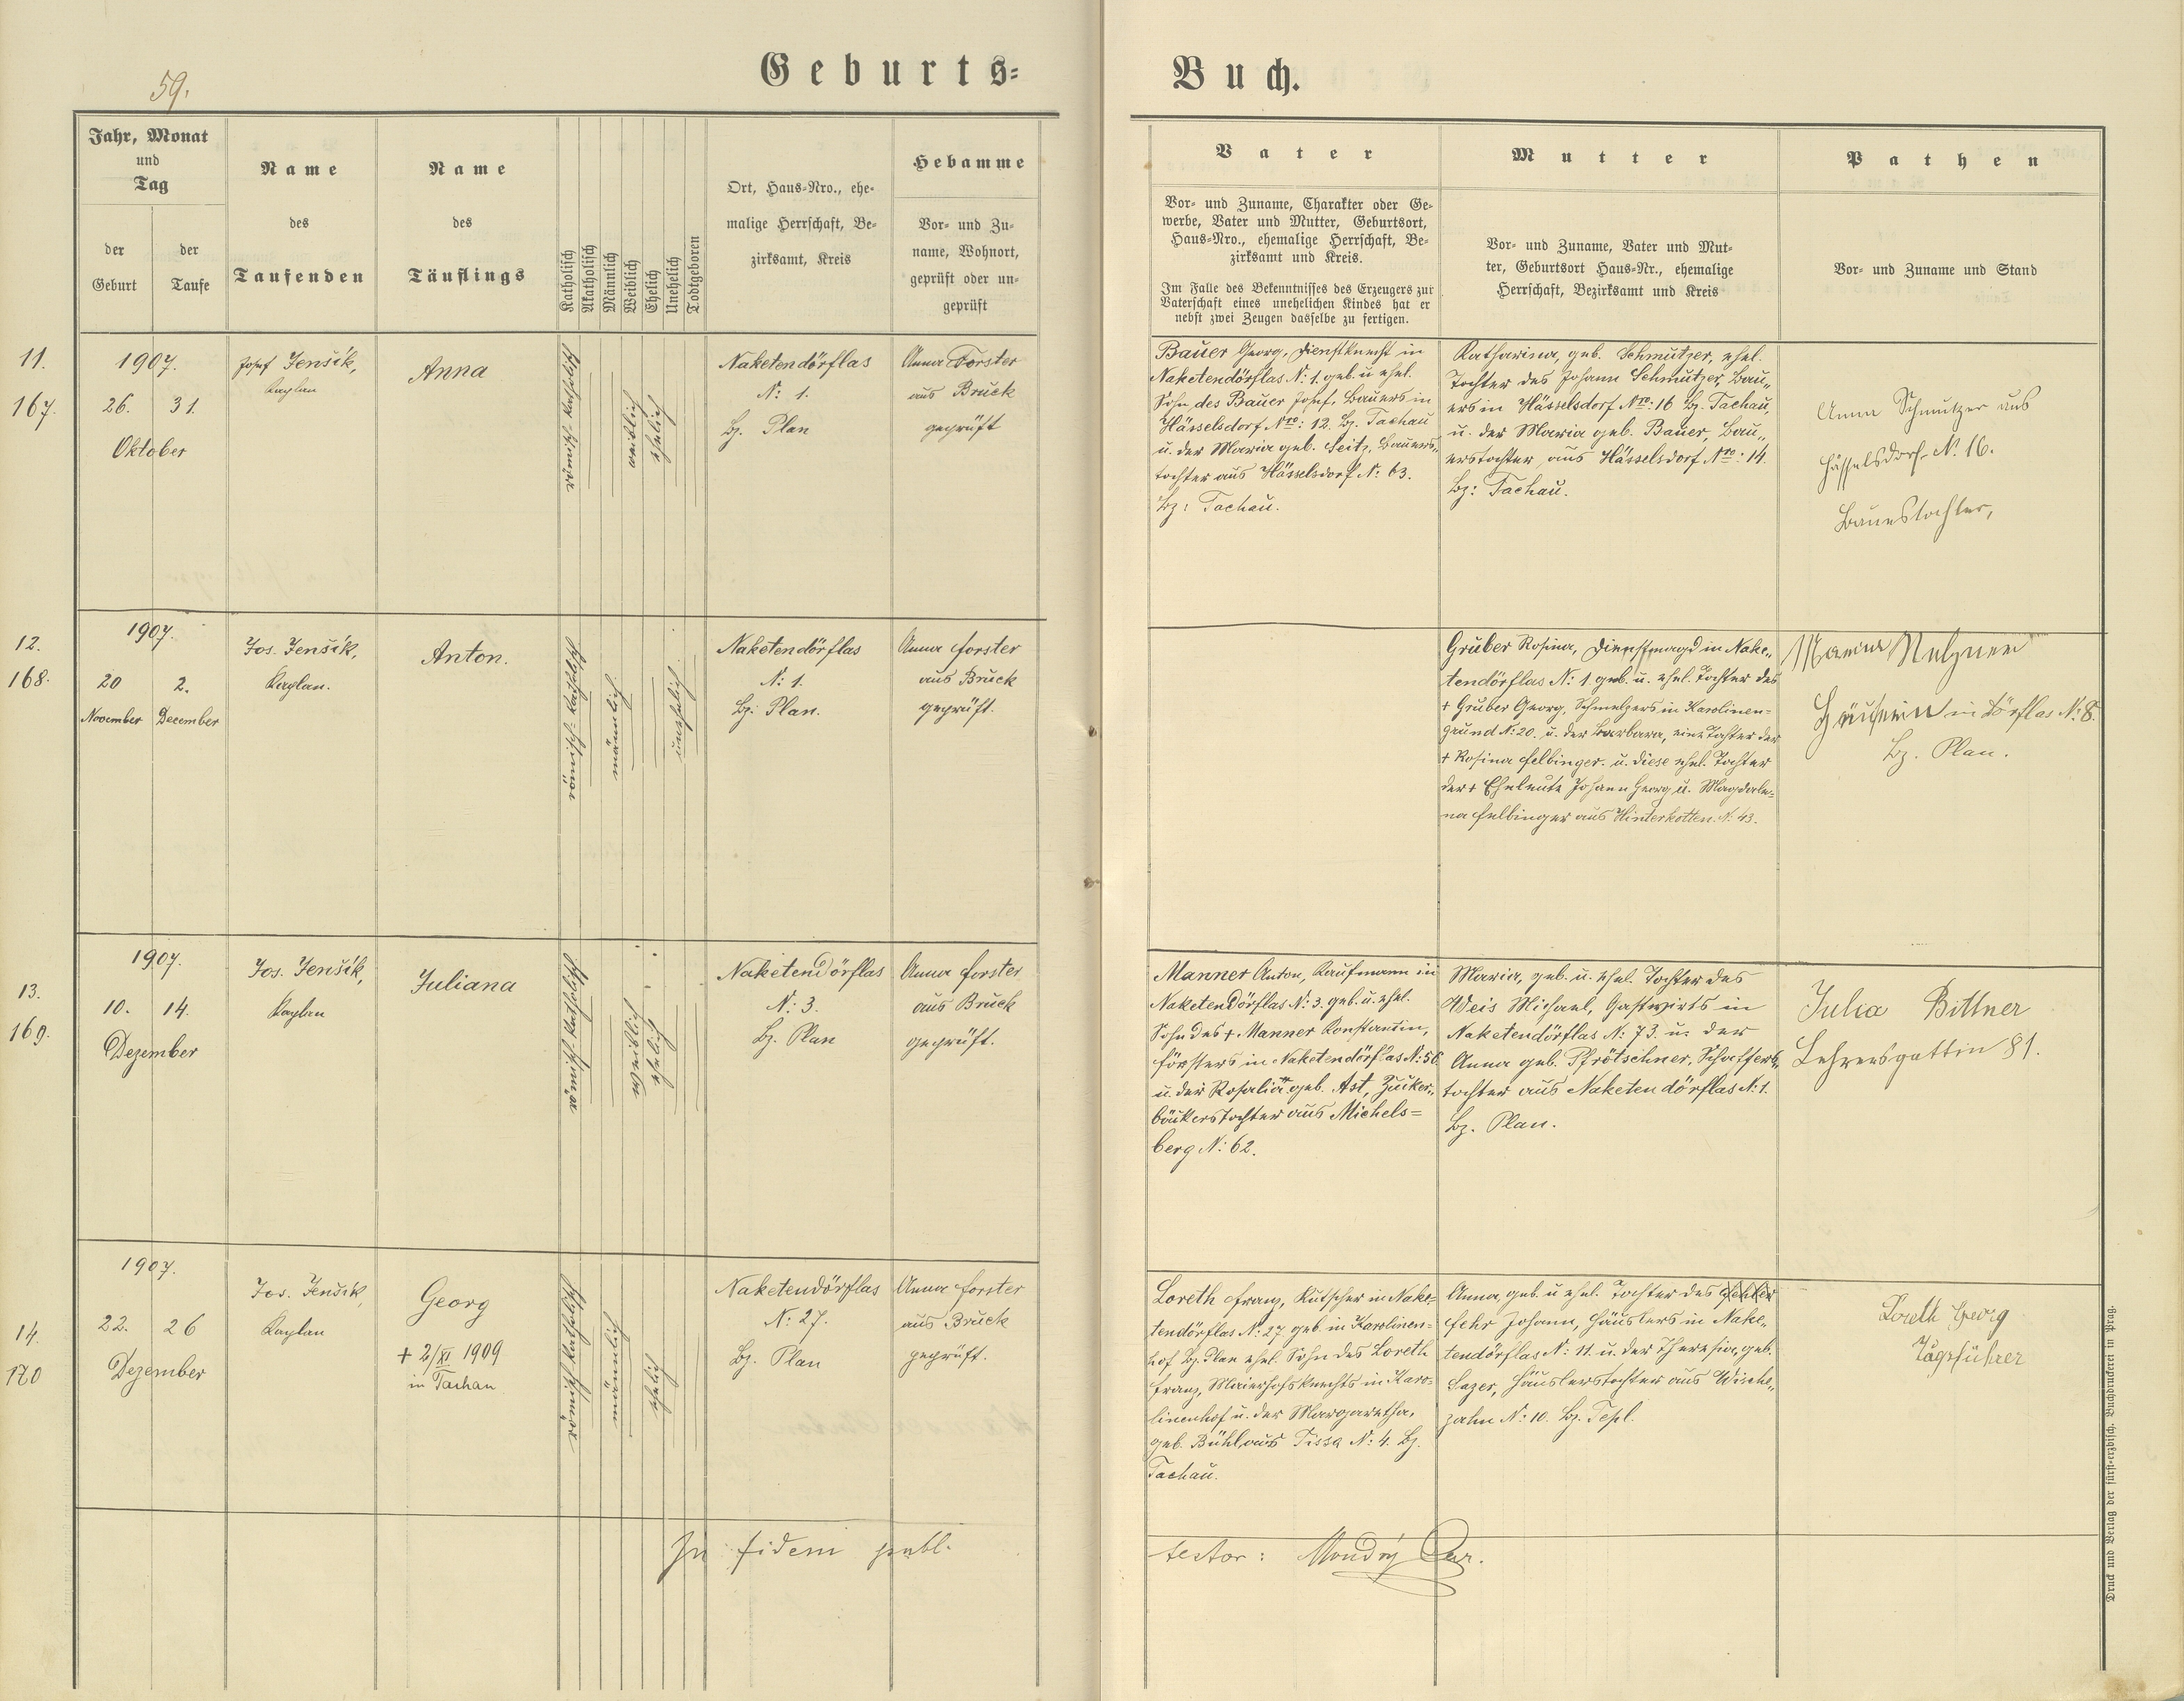 59.
Geburts-
Buch.
Jahr, Monat
und
Tag
der
Geburt
der
Taufe
Name
des
Taufenden
Name
des
Täuflings
Katholisch
Akatholisch
Männlich
Weiblich
Ehelich
Unehelich
Todtgeboren
Ort, Haus-Nro., ehe-
malige Herrschaft, Be-
zirksamt, Kreis
Hebamme
Vor- und Zu-
name, Wohnort,
geprüft oder un-
geprüft
Vater
Vor- und Zuname, Charakter oder Ge-
werbe, Vater und Mutter, Geburtsort,
Haus-Nro., ehemalige Herrschaft, Be-
zirksamt und Kreis.
Im Falle des Bekenntnisses des Erzeugers zur
Vaterschaft eines unehelichen Kindes hat er
nebst zwei Zeugen dasselbe zu fertigen.
Mutter
Vor- und Zuname, Vater und Mut-
ter, Geburtsort Haus-Nr., ehemalige
Herrschaft, Bezirksamt und Kreis
Pathen
Vor- und Zuname und Stand
11.
167.
1907.
26. 31.
Oktober
Josef Jenšík,
Kaplan
Anna
römisch-katholisch
weiblich
ehelich
Naketendörflas
N: 1.
Bz. Plan
Anna Forster
aus Bruck
geprüft
Bauer Georg, Dienstknecht in
Naketendörflas N: 1. geb. u. ehel.
Sohn des Bauer Josef, Bauers in
Hässelsdorf Nro: 12. Bz. Tachau
u. der Maria geb. Seitz, Bauers„
tochter aus Hässelsdorf N: 63.
Bz: Tachau.
Katharina, geb. Schmutzer, ehel.
Tochter des Johann Schmutzer, Bau„
ers in Hässelsdorf Nro: 16 Bz. Tachau,
u. der Maria geb. Bauer, Bau„
erstochter aus Hässelsdorf Nro: 14.
Bz: Tachau.
Anna Schmutzer aus
Hässelsdorf N. 16.
Bauerstochter,
12.
168.
1907.
20 2.
November December
Jos. Jenšík,
Kaplan.
Anton.
römisch-katholisch
männlich
unehelich
Naketendörflas
N: 1.
Bz: Plan.
Anna Forster
aus Bruck
geprüft.
Gruber Rosina, Dienstmagd in Nake„
tendörflas N: 1. geb. u. ehel. Tochter des
+ Gruber Georg, Schmelzers in Karolinen-
grund N: 20. u. der Barbara, eine Tochter der
+ Rosina Felbinger. u. diese ehel. Tochter
der + Eheleute Johann Georg u. Magdale-
na Felbinger aus Hinterkotten. N. 43.
Maria
in Dörflas N: 8.
Bz. Plan.
13.
169.
1907.
10. 14.
Dezember
Jos. Jenšík,
Kaplan
Juliana
römisch-katholisch
weiblich
ehelich
Naketendörflas
N: 3.
Bz. Plan
Anna Forster
aus Bruck
geprüft.
Manner Anton, Kaufmann in
Naketendörflas N: 3. geb. u. ehel.
Sohn des + Manner Konstantin,
Försters in Naketendörflas N: 56
u. der Rosalia geb. Ast, Zucker„
bäckerstochter aus Michels=
berg N: 62.
Maria, geb. u. ehel. Tochter des
Weis Michael, Gastwirts in
Naketendörflas N: 73. u. der
Anna geb. Pfrötschner, Schaffers„
tochter aus Naketendörflas N: 1.
Bz. Plan.
Julia Bittner
Lehrersgattin 81.
14.
170
1907.
22. 26
Dezember
Jos. Jenšík,
Kaplan
Georg
+ 2/XI 1909
in Tachau
römisch katholisch
männlich
ehelich
Naketendörflas
N: 27.
Bz. Plan
Anna Forster
aus Bruck
geprüft.
Loreth Franz, Kutscher in Nake-
tendörflas N: 27. geb. in Karolinen-
hof Bz. Plan ehel. Sohn des Loreth
Franz, Maierhofsknechts in Karo-
linenhof u. der Margaretha,
geb. Bühl aus Tissa N: 4. Bz.
Tachau.
Anna, geb. u. ehel. Tochter des
Fehr Johann, Häuslers in Nake„
tendörflas N: 11. u. der Theresia, geb.
Lazer, Häuslerstochter aus Wische„
zahn N: 10. Bz. Tepl.
Loreth Georg
Zugsführer
In fidem publ.
testor: Mondrý Par.
Druck und Verlag der fürst-erzbisch. Buchdruckerei in Prag.